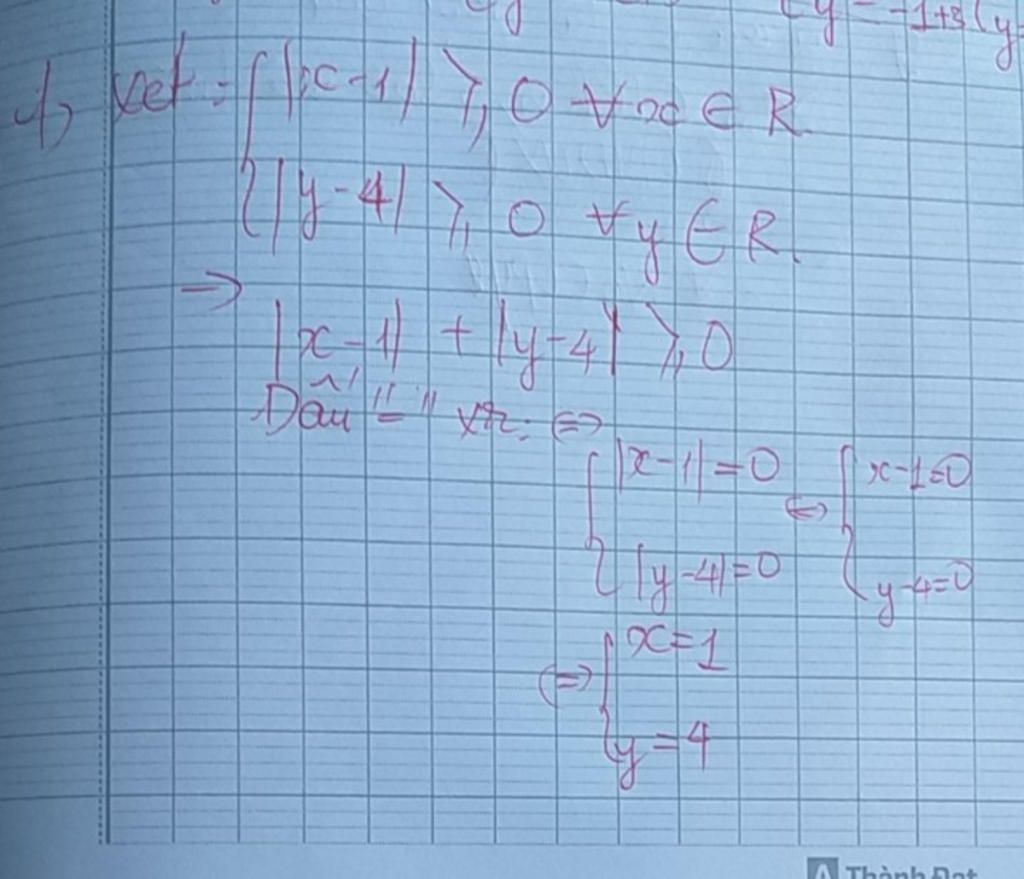 y = -1+3(y
f, Xét: { |x-1| ⩾ 0 ∀x ∈ R
{ |y-4| ⩾ 0 ∀y ∈ R.
=> |x-1| + |y-4| ⩾ 0
Dấu "=" xr: <=>
{ |x-1| = 0 <=> { x-1=0
{ |y-4| = 0 { y-4=0
<=> { x=1
{ y=4
Thành Đạt